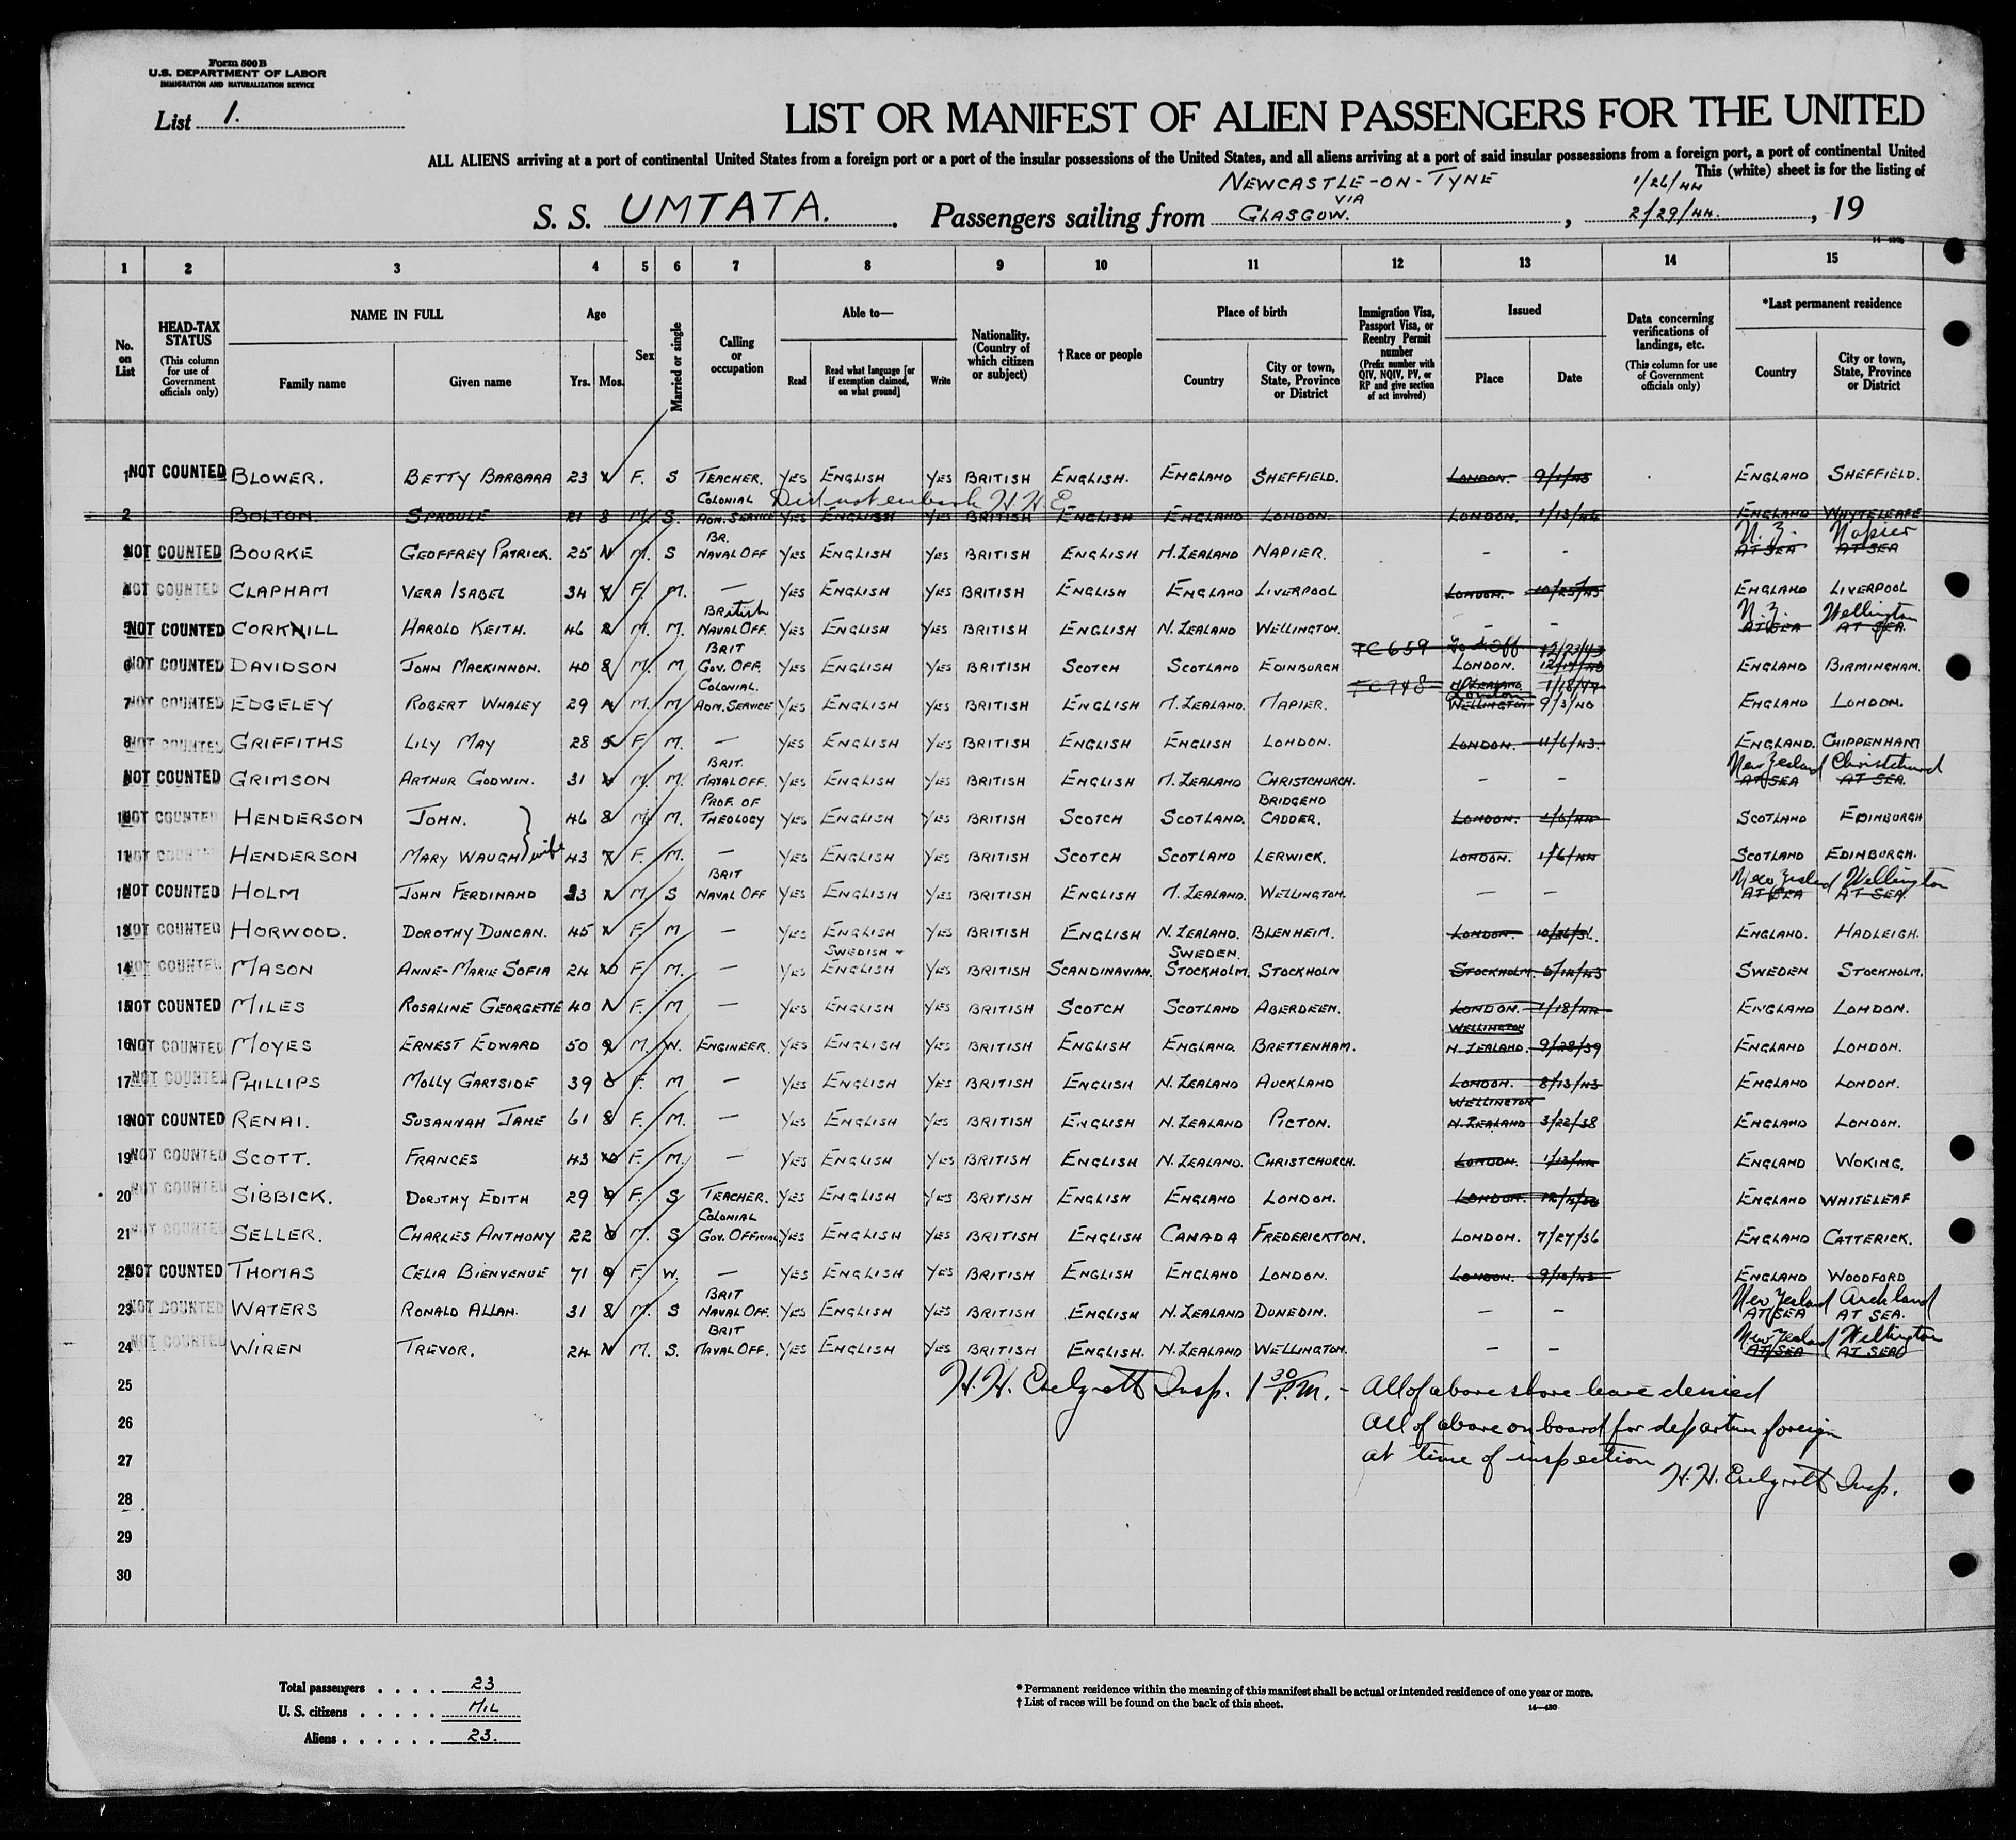 Form 500B
U.S. DEPARTMENT OF LABOR
IMMIGRATION AND NATURALIZATION SERVICE
List 1.
LIST OR MANIFEST OF ALIEN PASSENGERS FOR THE UNITED
ALL ALIENS arriving at a port of continental United States from a foreign port or a port of the insular possessions of the United States, and all aliens arriving at a port of said insular possessions from a foreign port, a port of continental United
This (white) sheet is for the listing of
NEWCASTLE-ON-TYNE 1/26/44
VIA
S. S. UMTATA. Passengers sailing from GLASGOW. , 2/29/44. , 19
1 2 3 4 5 6 7 8 9 10 11 12 13 14 15
No. on List
HEAD-TAX STATUS (This column for use of Government officials only)
NAME IN FULL Family name Given name
Age Yrs. Mos.
Sex
Married or single
Calling or occupation
Able to— Read Read what language [or if exemption claimed, on what ground] Write
Nationality. (Country of which citizen or subject)
†Race or people
Place of birth Country City or town, State, Province or District
Immigration Visa, Passport Visa, or Reentry Permit number (Prefix number with QIV, NQIV, PV, or RP and give section of act involved)
Issued Place Date
Data concerning verifications of landings, etc. (This column for use of Government officials only)
*Last permanent residence Country City or town, State, Province or District
1 NOT COUNTED BLOWER. BETTY BARBARA 23 F. S TEACHER. YES ENGLISH YES BRITISH ENGLISH. ENGLAND SHEFFIELD. LONDON. 9/1/43 ENGLAND SHEFFIELD.
Did not embark H. H. E
2 BOLTON. SPROULE 21 8 M. S. COLONIAL ADM. SERVICE YES ENGLISH YES BRITISH ENGLISH ENGLAND LONDON. LONDON. 1/13/44 ENGLAND WHYTELEAFE
3 NOT COUNTED BOURKE GEOFFREY PATRICK. 25 M. S BR. NAVAL OFF YES ENGLISH YES BRITISH ENGLISH N. ZEALAND NAPIER. – – N. Z. Napier AT SEA AT SEA
4 NOT COUNTED CLAPHAM VERA ISABEL 34 F. M. — YES ENGLISH YES BRITISH ENGLISH ENGLAND LIVERPOOL LONDON. 10/25/43 ENGLAND LIVERPOOL
5 NOT COUNTED CORKHILL HAROLD KEITH. 46 M. M. British NAVAL OFF. YES ENGLISH YES BRITISH ENGLISH N. ZEALAND WELLINGTON. – – N. Z. Wellington AT SEA AT SEA.
6 NOT COUNTED DAVIDSON JOHN MACKINNON. 40 8 M. M. BRIT GOV. OFF. YES ENGLISH YES BRITISH SCOTCH SCOTLAND EDINBURGH TC 659 12/23/43 LONDON. ENGLAND BIRMINGHAM.
7 NOT COUNTED EDGELEY ROBERT WHALEY 29 M. M COLONIAL. ADM. SERVICE YES ENGLISH YES BRITISH ENGLISH N. ZEALAND. NAPIER. TC 748 N. ZEALAND. 1/18/44 London WELLINGTON 9/3/40 ENGLAND LONDON.
8 NOT COUNTED GRIFFITHS LILY MAY 28 F. M. — YES ENGLISH YES BRITISH ENGLISH ENGLISH LONDON. LONDON. 11/6/43. ENGLAND. CHIPPENHAM
9 NOT COUNTED GRIMSON ARTHUR GODWIN. 31 M. M. BRIT. NAVAL OFF. YES ENGLISH YES BRITISH ENGLISH N. ZEALAND CHRISTCHURCH. – – New Zealand Christchurch AT SEA AT SEA.
10 NOT COUNTED HENDERSON JOHN. 46 8 M. M. PROF. OF THEOLOGY YES ENGLISH YES BRITISH SCOTCH SCOTLAND. BRIDGEND CADDER. LONDON. 1/6/44 SCOTLAND EDINBURGH
11 NOT COUNTED HENDERSON MARY WAUGH } wife 43 F. M. — YES ENGLISH YES BRITISH SCOTCH SCOTLAND LERWICK. LONDON. 1/6/44 SCOTLAND EDINBURGH.
12 NOT COUNTED HOLM JOHN FERDINAND 23 M. S BRIT NAVAL OFF YES ENGLISH YES BRITISH ENGLISH N. ZEALAND. WELLINGTON. — – New Zealand Wellington AT SEA AT SEA.
13 NOT COUNTED HORWOOD. DOROTHY DUNCAN. 45 F. M — YES ENGLISH YES BRITISH ENGLISH N. ZEALAND. BLENHEIM. LONDON. 10/26/36. ENGLAND. HADLEIGH.
14 NOT COUNTED MASON ANNE-MARIE SOFIA 24 10 F. M. — YES SWEDISH + ENGLISH YES BRITISH SCANDINAVIAN. SWEDEN. STOCKHOLM. STOCKHOLM STOCKHOLM. 5/14/43 SWEDEN STOCKHOLM.
15 NOT COUNTED MILES ROSALINE GEORGETTE 40 F. M — YES ENGLISH YES BRITISH SCOTCH SCOTLAND ABERDEEN. LONDON. 1/18/44 ENGLAND LONDON.
16 NOT COUNTED MOYES ERNEST EDWARD 50 M. W. ENGINEER. YES ENGLISH YES BRITISH ENGLISH ENGLAND. BRETTENHAM. WELLINGTON N. ZEALAND. 9/28/39 ENGLAND LONDON.
17 NOT COUNTED PHILLIPS MOLLY GARTSIDE 39 F. M — YES ENGLISH YES BRITISH ENGLISH N. ZEALAND AUCKLAND LONDON. 8/13/43 ENGLAND LONDON.
18 NOT COUNTED RENAI. SUSANNAH JANE 61 8 F. M. — YES ENGLISH YES BRITISH ENGLISH N. ZEALAND PICTON. WELLINGTON N. ZEALAND 3/22/38 ENGLAND LONDON.
19 NOT COUNTED SCOTT. FRANCES 43 10 F. M. — YES ENGLISH YES BRITISH ENGLISH N. ZEALAND. CHRISTCHURCH. LONDON. 1/13/44 ENGLAND WOKING.
20 NOT COUNTED SIBBICK. DOROTHY EDITH 29 9 F. S TEACHER. YES ENGLISH YES BRITISH ENGLISH ENGLAND LONDON. LONDON. ENGLAND WHITELEAF
21 NOT COUNTED SELLER. CHARLES ANTHONY 22 M. S COLONIAL GOV. OFFICIAL YES ENGLISH YES BRITISH ENGLISH CANADA FREDERICKTON. LONDON. 7/27/36 ENGLAND CATTERICK.
22 NOT COUNTED THOMAS CELIA BIENVENUE 71 9 F. W. — YES ENGLISH YES BRITISH ENGLISH ENGLAND LONDON. LONDON. 9/10/43 ENGLAND WOODFORD
23 NOT COUNTED WATERS RONALD ALLAN. 31 8 M. S BRIT NAVAL OFF. YES ENGLISH YES BRITISH ENGLISH N. ZEALAND DUNEDIN. – – New Zealand Auckland AT SEA AT SEA.
24 NOT COUNTED WIREN TREVOR. 24 M. S. BRIT NAVAL OFF. YES ENGLISH YES BRITISH ENGLISH. N. ZEALAND WELLINGTON. – – New Zealand Wellington AT SEA AT SEA
25 H. H. Insp. 1 30 P.M. – All of above shore leave denied
26 All of above on board for departure foreign
27 at time of inspection
H. H. Insp.
28
29
30
Total passengers . . . . 23
U. S. citizens . . . . . NIL
Aliens . . . . . . 23.
* Permanent residence within the meaning of this manifest shall be actual or intended residence of one year or more.
† List of races will be found on the back of this sheet.
14—430